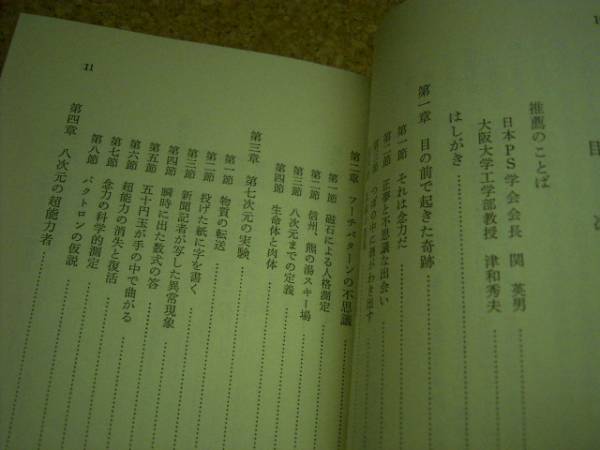 目次
推薦のことば
日本PS学会会長 関 英男
大阪大学工学部教授 津和秀夫
はしがき
第一章 目の前で起きた奇跡
第一節 それは念力だ
第二節 正夢と不思議な出会い
第三節 つぼの中に酒がわき出す
11
第二章 フーチパターンの不思議
第一節 磁石による人格測定
第二節 信州、熊の湯スキー場
第三節 八次元までの定義
第四節 生命体と肉体
第三章 第七次元の実験
第一節 物質の転送
第二節 投げた紙に字を書く
第三節 新聞記者が写した異常現象
第四節 瞬時に出た数式の答
第五節 五十円玉が手の中で曲がる
第六節 超能力の消失と復活
第七節 念力の科学的測定
第八節 パクトロンの仮説
第四章 八次元の超能力者